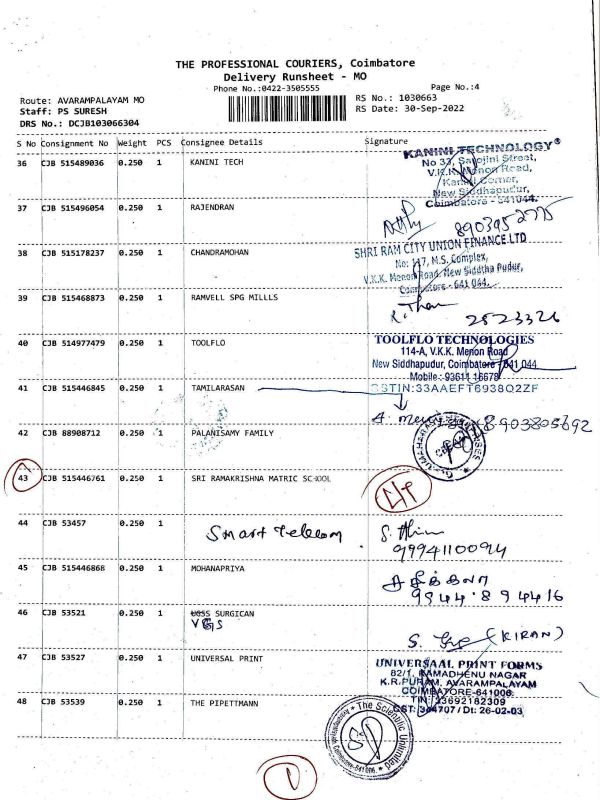 THE PROFESSIONAL COURIERS, Coimbatore
Delivery Runsheet - MO
Phone No.:0422-3505555
Page No.:4
Route: AVARAMPALAYAM MO
RS No.: 1030663
Staff: PS SURESH
RS Date: 30-Sep-2022
DRS No.: DCJB103066304
S No Consignment No Weight PCS Consignee Details Signature
36 CJB 515489036 0.250 1 KANINI TECH
KANINI TECHNOLOGY®
No 33, Sarojini Street,
V.K.K. Menon Road,
Kanini Corner,
New Siddhapudur,
Coimbatore - 641044.
37 CJB 515496054 0.250 1 RAJENDRAN
8903952775
38 CJB 515178237 0.250 1 CHANDRAMOHAN
SHRI RAM CITY UNION FINANCE LTD
No: 117, M.S. Complex,
V.K.K. Menon Road, New Siddha Pudur,
Coimbatore - 641 044.
39 CJB 515468873 0.250 1 RAMVELL SPG MILLLS
2523326
40 CJB 514977479 0.250 1 TOOLFLO
TOOLFLO TECHNOLOGIES
114-A, V.K.K. Menon Road
New Siddhapudur, Coimbatore - 641 044
Mobile : 93611 16678
GSTIN:33AAEFT6938Q2ZF
41 CJB 515446845 0.250 1 TAMILARASAN
8903805692
42 CJB 88908712 0.250 1 PALANISAMY FAMILY
43 CJB 515446761 0.250 1 SRI RAMAKRISHNA MATRIC SCHOOL
44 CJB 53457 0.250 1
Smart Telecom
9994110094
45 CJB 515446868 0.250 1 MOHANAPRIYA
சசிக்கலா
9944894416
46 CJB 53521 0.250 1 UGSS SURGICAN
VGS
(KIRAN)
47 CJB 53527 0.250 1 UNIVERSAL PRINT
UNIVERSAAL PRINT FORMS
82/1, RAMADHENU NAGAR
K.R.PURAM, AVARAMPALAYAM
COIMBATORE-641006.
TIN: 33692182309
CST: 364707 / Dt: 26-02-03
48 CJB 53539 0.250 1 THE PIPETTMANN
The Scientific Unlimited